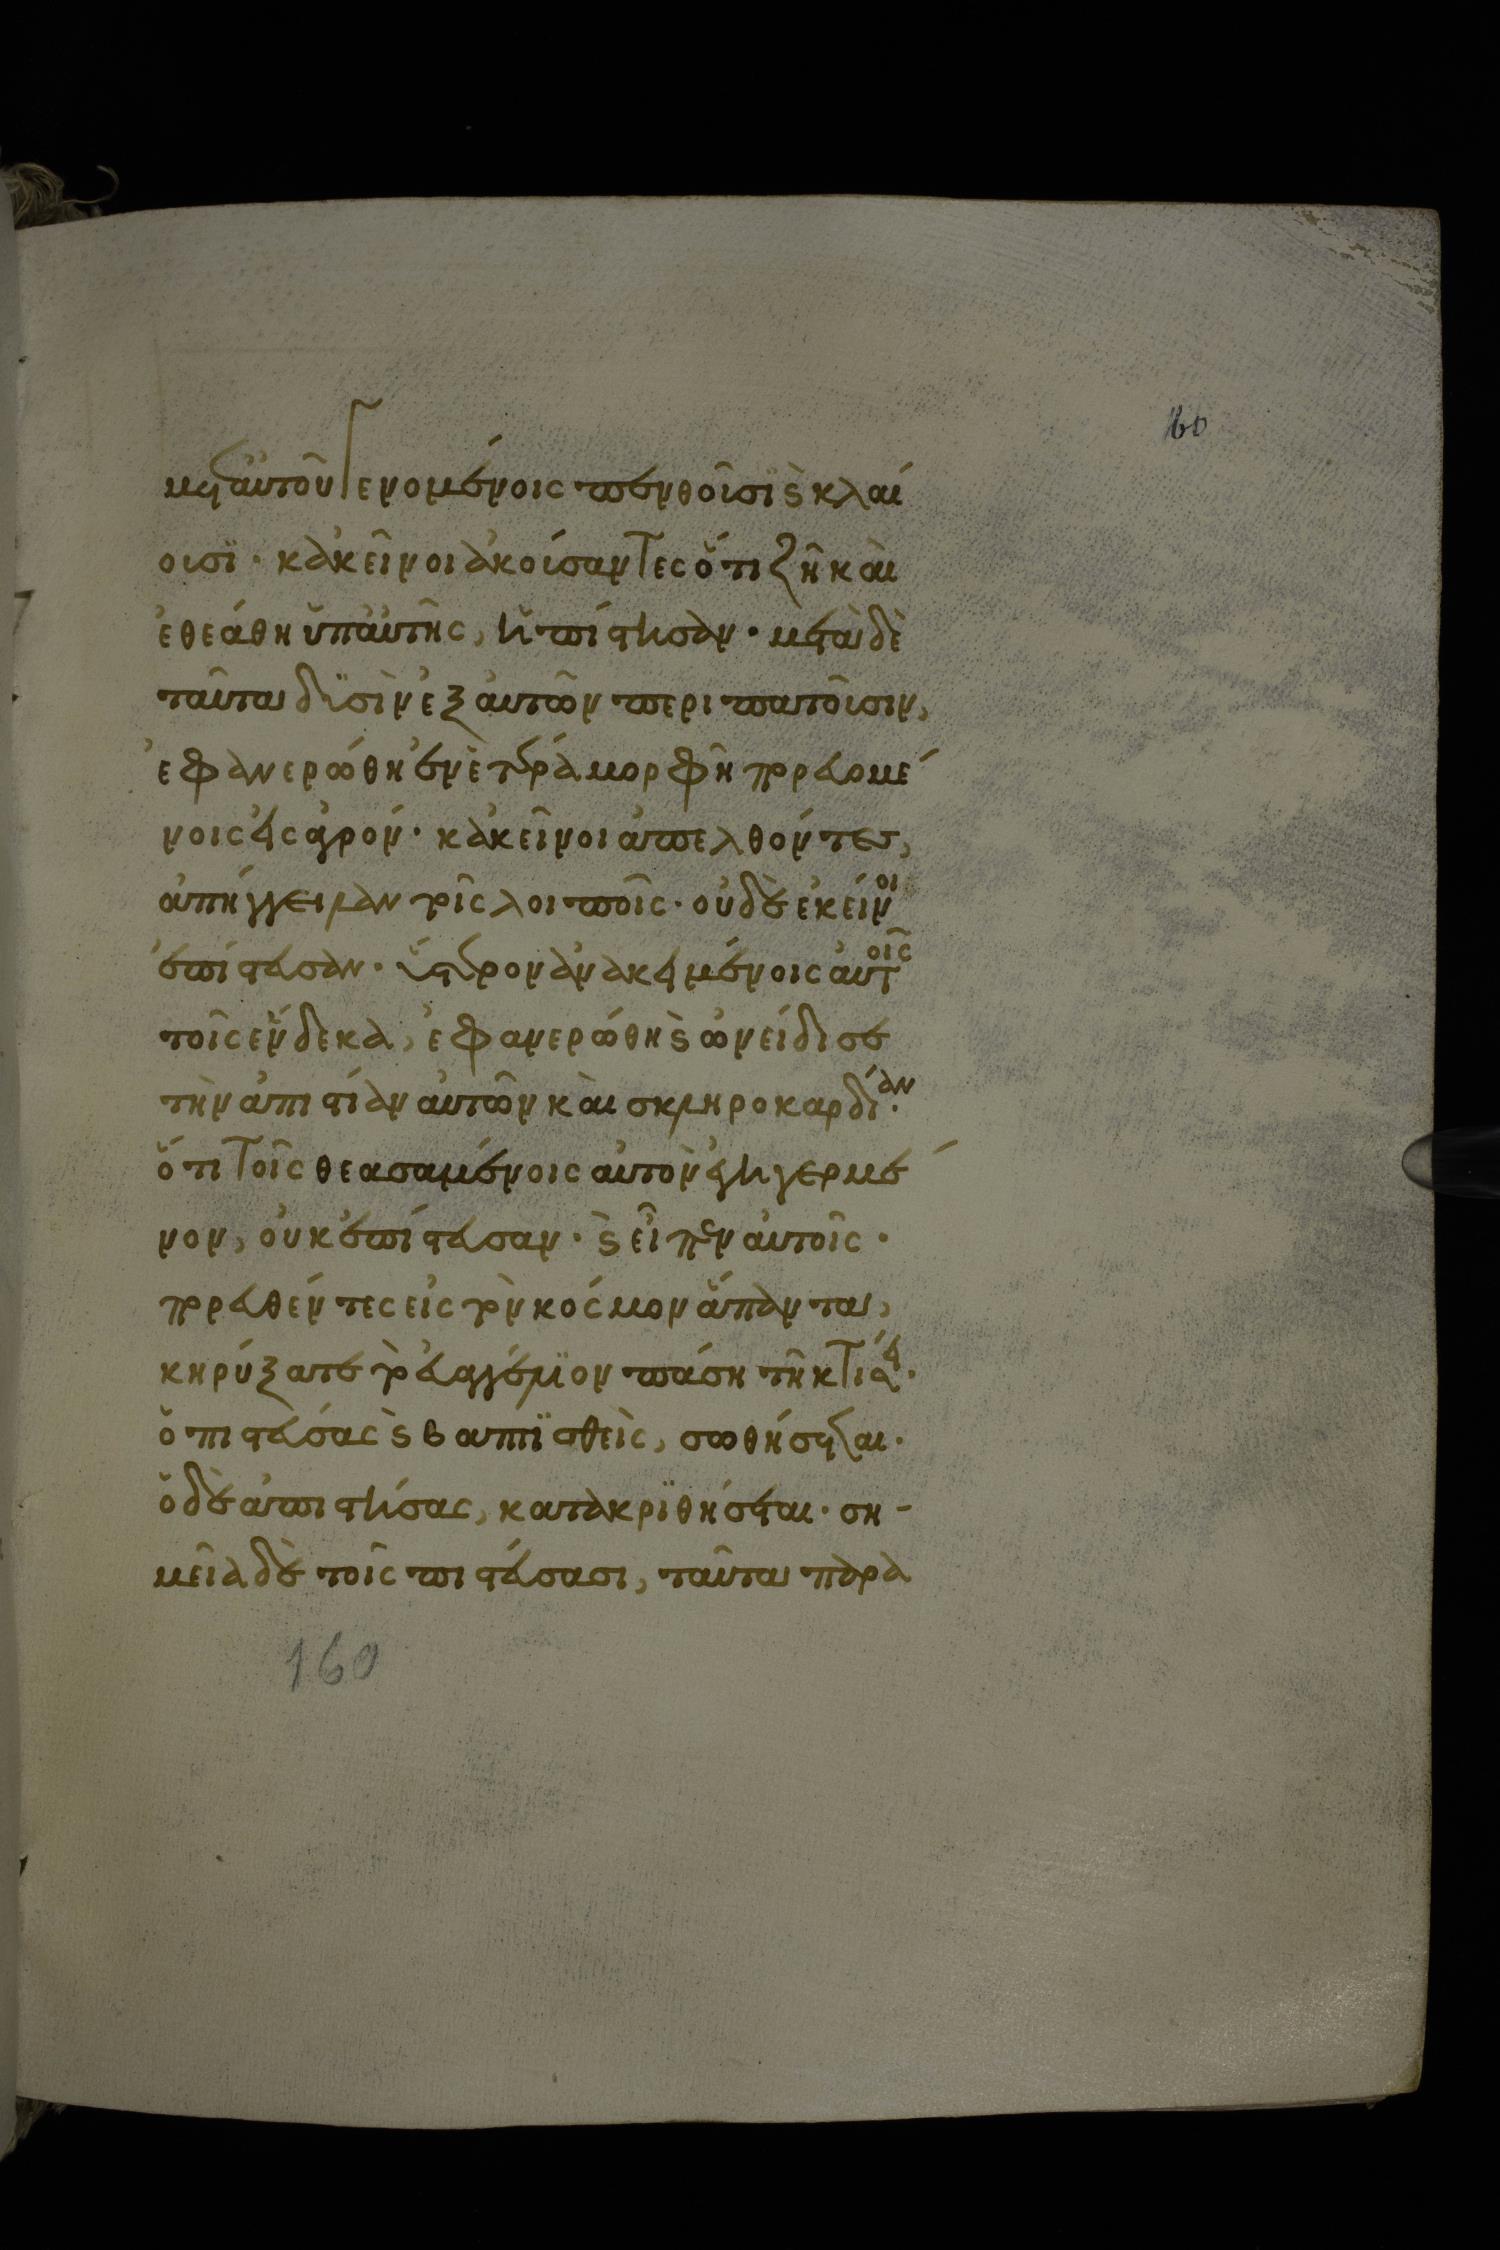 160
μετ' αὐτοῦ γενομένοις πενθοῦσϊ καὶ κλαί
ουσϊ· κἀκεῖνοι ἀκούσαντες ὅτι ζῆ καὶ
ἐθεάθη ὑπ' αὐτῆς, ἠπίστησαν· μετὰ δὲ
ταῦτα δϋσὶν ἐξ αὐτῶν περιπατοῦσιν,
ἐφανερώθη ἐν ἑτέρα μορφῆ πορευομέ
νοις εἰς ἀγρόν· κἀκεῖνοι ἀπελθόντες,
ἀπήγγειλαν τοῖς λοιποῖς· οὐδὲ ἐκείνοι
ἐπίστευσαν· ὕστερον ἀνακειμένοις αὐτοῖς
τοῖς ἕνδεκα, ἐφανερώθη καὶ ὠνείδισε
τὴν ἀπιστίαν αὐτῶν καὶ σκληροκαρδίαν·
ὅτι τοῖς θεασαμένοις αὐτὸν ἐγηγερμέ
νον, οὐκ ἐπίστευσαν· καὶ εἶπεν αὐτοῖς·
πορευθέντες εἰς τὸν κόσμον ἅπαντα,
κηρύξατε τὸ εὐαγγέλϊον πάση τῆ κτίσει·
ὁ πιστεύσας καὶ βαπτϊσθεὶς, σωθήσεται·
ὁ δὲ ἀπιστήσας, κατακρϊθήσεται· ση-
μεῖα δὲ τοῖς πιστεύσασι, ταῦτα παρα
160